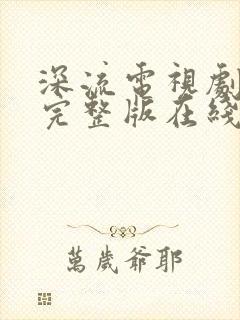 深流電視劇
完整版在綫
萬歲爺耶